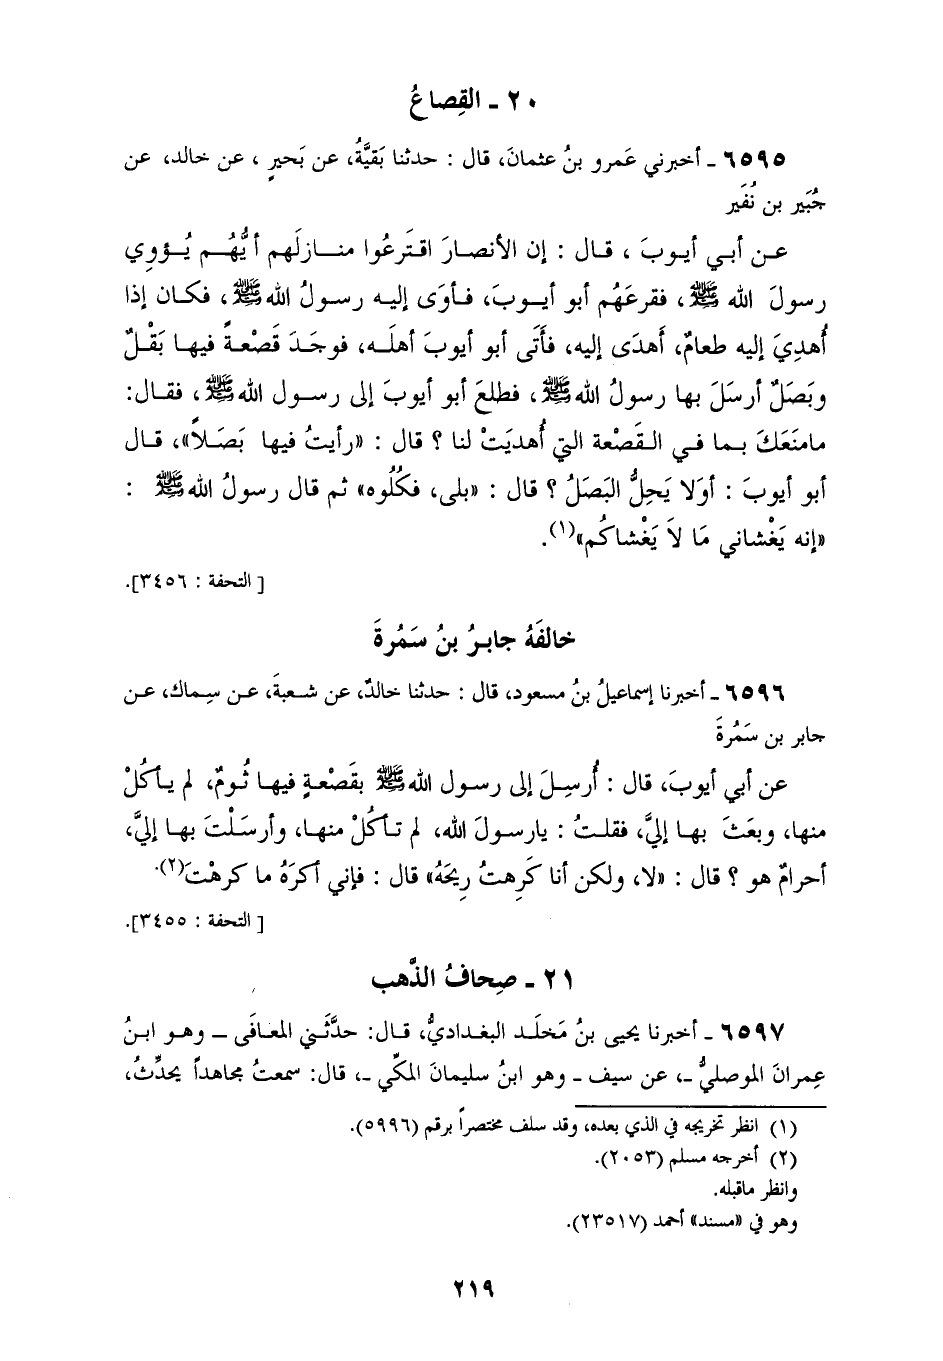 ٢٠ ـ القِصاعُ
٦٥٩٥ ـ أخبرني عَمرو بنُ عثمانَ، قال : حدثنا بَقيَّةُ، عن بَحيرٍ ، عن خالد، عن
جُبَير بن نُفَير
عن أبي أيوبَ ، قال : إن الأنصارَ اقتَرعُوا منازلَهم أيُّهم يُؤوِي
رسولَ الله ﷺ، فقرعَهُم أبو أيوبَ، فأوَى إليه رسولُ اللهﷺ، فكان إذا
أُهدِيَ إليه طعامٌ، أَهدَى إليه، فأَتَى أبو أيوبَ أهلَه، فوجَدَ قَصْعةً فيها بَقْلٌ
وبَصَلٌ أرسَلَ بها رسولُ اللهﷺ، فطلعَ أبو أيوبَ إلى رسول اللهﷺ، فقال:
مامنَعَكَ بما في القَصْعة التي أُهديَتْ لنا ؟ قال : «رأيتُ فيها بَصَلاً»، قال
أبو أيوبَ : أوَلا يَحِلُّ البَصَلُ ؟ قال : «بلى، فكُلُوه» ثم قال رسولُ اللهﷺ :
«إنه يَغْشاني مَا لاَ يَغْشاكُم»(١).
[ التحفة : ٣٤٥٦].
خالفَهُ جابرُ بنُ سَمُرةَ
٦٥٩٦ ـ أخبرنا إسماعيلُ بنُ مسعود، قال : حدثنا خالدٌ، عن شعبةَ، عن سِماك، عن
جابر بن سَمُرةَ
عن أبي أيوبَ، قال : أُرسِلَ إلى رسول اللهﷺ بقَصْعةٍ فيها ثُومٌ، لم يأكُلْ
منها، وبعَثَ بها إليَّ، فقلتُ : يارسولَ الله، لم تأكُلْ منها، وأرسَلْتَ بها إليَّ،
أحرامٌ هو ؟ قال : «لا، ولكن أنا كَرِهتُ رِيحَهُ» قال : فإني أكرَهُ ما كرهْتَ(٢).
[ التحفة : ٣٤٥٥].
٢١ ـ صِحافُ الذَّهب
٦٥٩٧ ـ أخبرنا يحيى بنُ مَخلَد البغداديُّ، قال: حدَّثَني المعافَى ـ وهو ابنُ
عِمرانَ الموصليُّ ـ، عن سيف ـ وهو ابنُ سليمانَ المكِّي ـ، قال: سمعتُ مجاهداً يحدِّثُ،
(١) انظر تخريجه في الذي بعده، وقد سلف مختصراً برقم (٥٩٩٦).
(٢) أخرجه مسلم (٢٠٥٣).
وانظر ماقبله.
وهو في «مسند» أحمد (٢٣٥١٧).
٢١٩